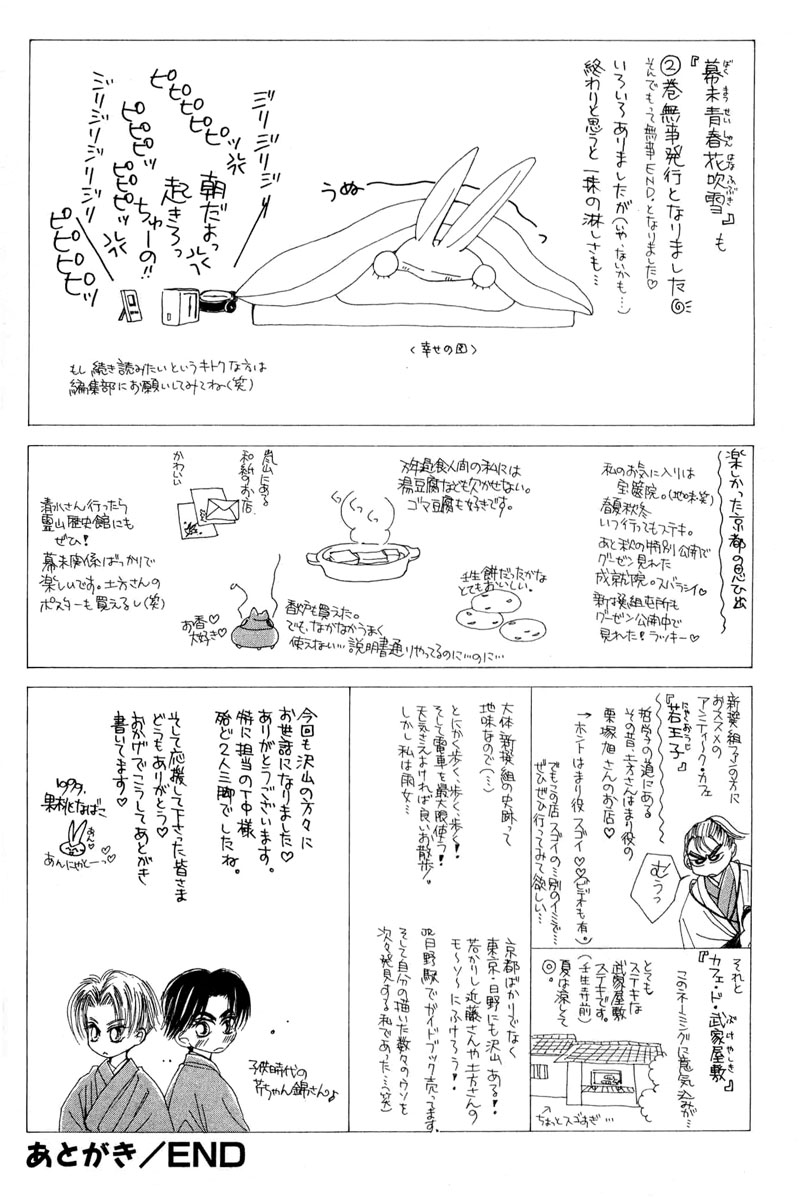 『幕末青春花吹雪』も
ばくまつせいしゅんはなふぶき
②巻無事発行となりました◎
そんでもって無事END。となりました♡
いろいろありましたが(いや、ないかも…)
終わりと思うと一抹の淋しさも…
うぬ
ジリジリジリ
朝だよっ
起きろっ
ちゅーの!!
ピピピピピッ
ピピピッ
ピピピピッ
ジリジリジリジリ
〈幸せの図〉
もし続き読みたいというキトクな方は
編集部にお願いしてみてねー(笑)
楽しかった京都の思ひ出
私のお気に入りは
宝筺院。(地味笑)
春夏秋冬
いつ行ってもステキ。
あと秋の特別公開で
グーゼン見れた
成就院。スバラシイ♡
新撰組屯所も
グーゼン公開中で
見れた!ラッキー♡
万年過食人間の私には
湯豆腐なども欠かせない。
ゴマ豆腐も好きです。
壬生餅だったかな
とてもおいしい。
嵐山にある
和紙のお店。
かわいい
香炉も買えた。
でも、なかなかうまく
使えない…説明書通りやってるのに…のに…
お香♡
大好き♡
清水さん行ったら
霊山歴史館にも
ぜひ!
幕末関係ばっかりで
楽しいです。土方さんの
ポスターも買えるし(笑)
新撰組ファンの方に
おススメの
アンティーク・カフェ
『若王子』
にゃくおうじ
哲学の道にある
その昔、土方さんはまり役の
栗塚旭さんのお店♡
→ホントはまり役スゴイ♡♡ビデオも有。
でもこの店スゴイの…別のイミで…
ぜひぜひ行ってみて欲しい…
むうっ
それと
『カフェ・ド・武家屋敷』
ぶけやしき
このネーミングに意気込みが…
とても
ステキな
武家屋敷
ステキです。
(壬生寺前)
夏は涼しくて
◎。
ちょっとスゴすぎ…
大体、新撰組の史跡って
地味なので(…)
とにかく歩く、歩く、歩く!
そして電車を最大限使う!
天気さえよければ良いお散歩。
しかし私は雨女…
京都ばかりでなく
東京・日野にも沢山ある!
若かりし近藤さんや土方さんの
モ〜ソ〜にふけろう!
JR日野駅でガイドブック売ってます。
そして自分の描いた数々のウソを
次々発見する私であった…(笑)
今回も沢山の方々に
お世話になりました♡
ありがとうございます。
特に担当のT中様
殆ど2人三脚でしたね。
そして応援して下さった皆さま
どうもありがとう♡
おかげでこうしてあとがき
書いてます♡
果桃なばこ
あんにゃとーっ♡
子供時代の
芹ちゃん錦さん♪
あとがき/END